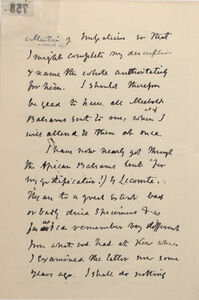 758
collection of Impatiens so that
I might complete my description
& name the whole authoritatively
for him. I should therefore
be glad to have all Meebold's
Balsams sent to me, when I
will attend to them at once.
I have now nearly got through
the African Balsams sent for
my gratification(!) by Lecomte.
They are to a great extent bad
or badly dried specimens & as
far as I can remember very different
from what we had at Kew when
I examined the latter now some
years ago. I shall do nothing